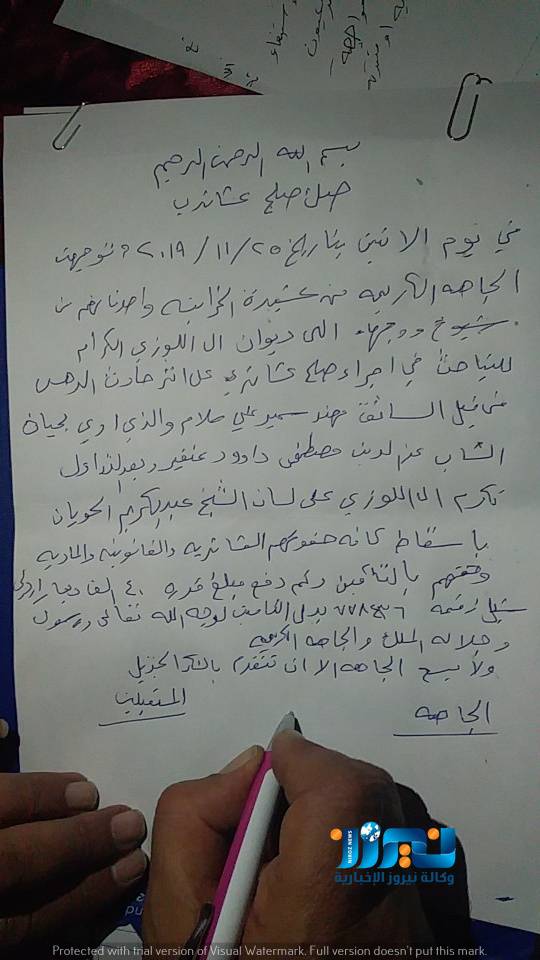 بسم الله الرحمن الرحيم
صك صلح عشائري
في يوم الاثنين بتاريخ ٢٠١٩/١١/٢٥ م توجهت
الجاهه الكريمه من عشيرة الخزاينه واصدقائهم من
شيوخ ووجهاء الى ديوان ال اللوزي الكرام
للتباحث في اجراء صلح عشائري على اثر حادث الدهس
من قبل السائق مهند سمير علي سلام والذي اودى بحياة
الشاب عز الدين مصطفى داوود عنفير وبعد التداول
تكرم ال اللوزي على لسان الشيخ عبدالكريم الحويان
باسقاط كافه حقوقهم العشائريه والقانونيه والماديه
وحقهم بالتأمين وتم دفع مبلغ قدره ٤٠ الف دينار اردني
شيك رقمه بدل التأمين لوجه الله تعالى ورسوله
وجلاله الملك والجاهه الكريمه
ولا يسع الجاهه الا ان تتقدم بالشكر الجزيل
الجاهه
المستقبلين
نيروز
SINCE 2008
وكالة نيروز الإخبارية
Protected with trial version of Visual Watermark. Full version doesn't put this mark.